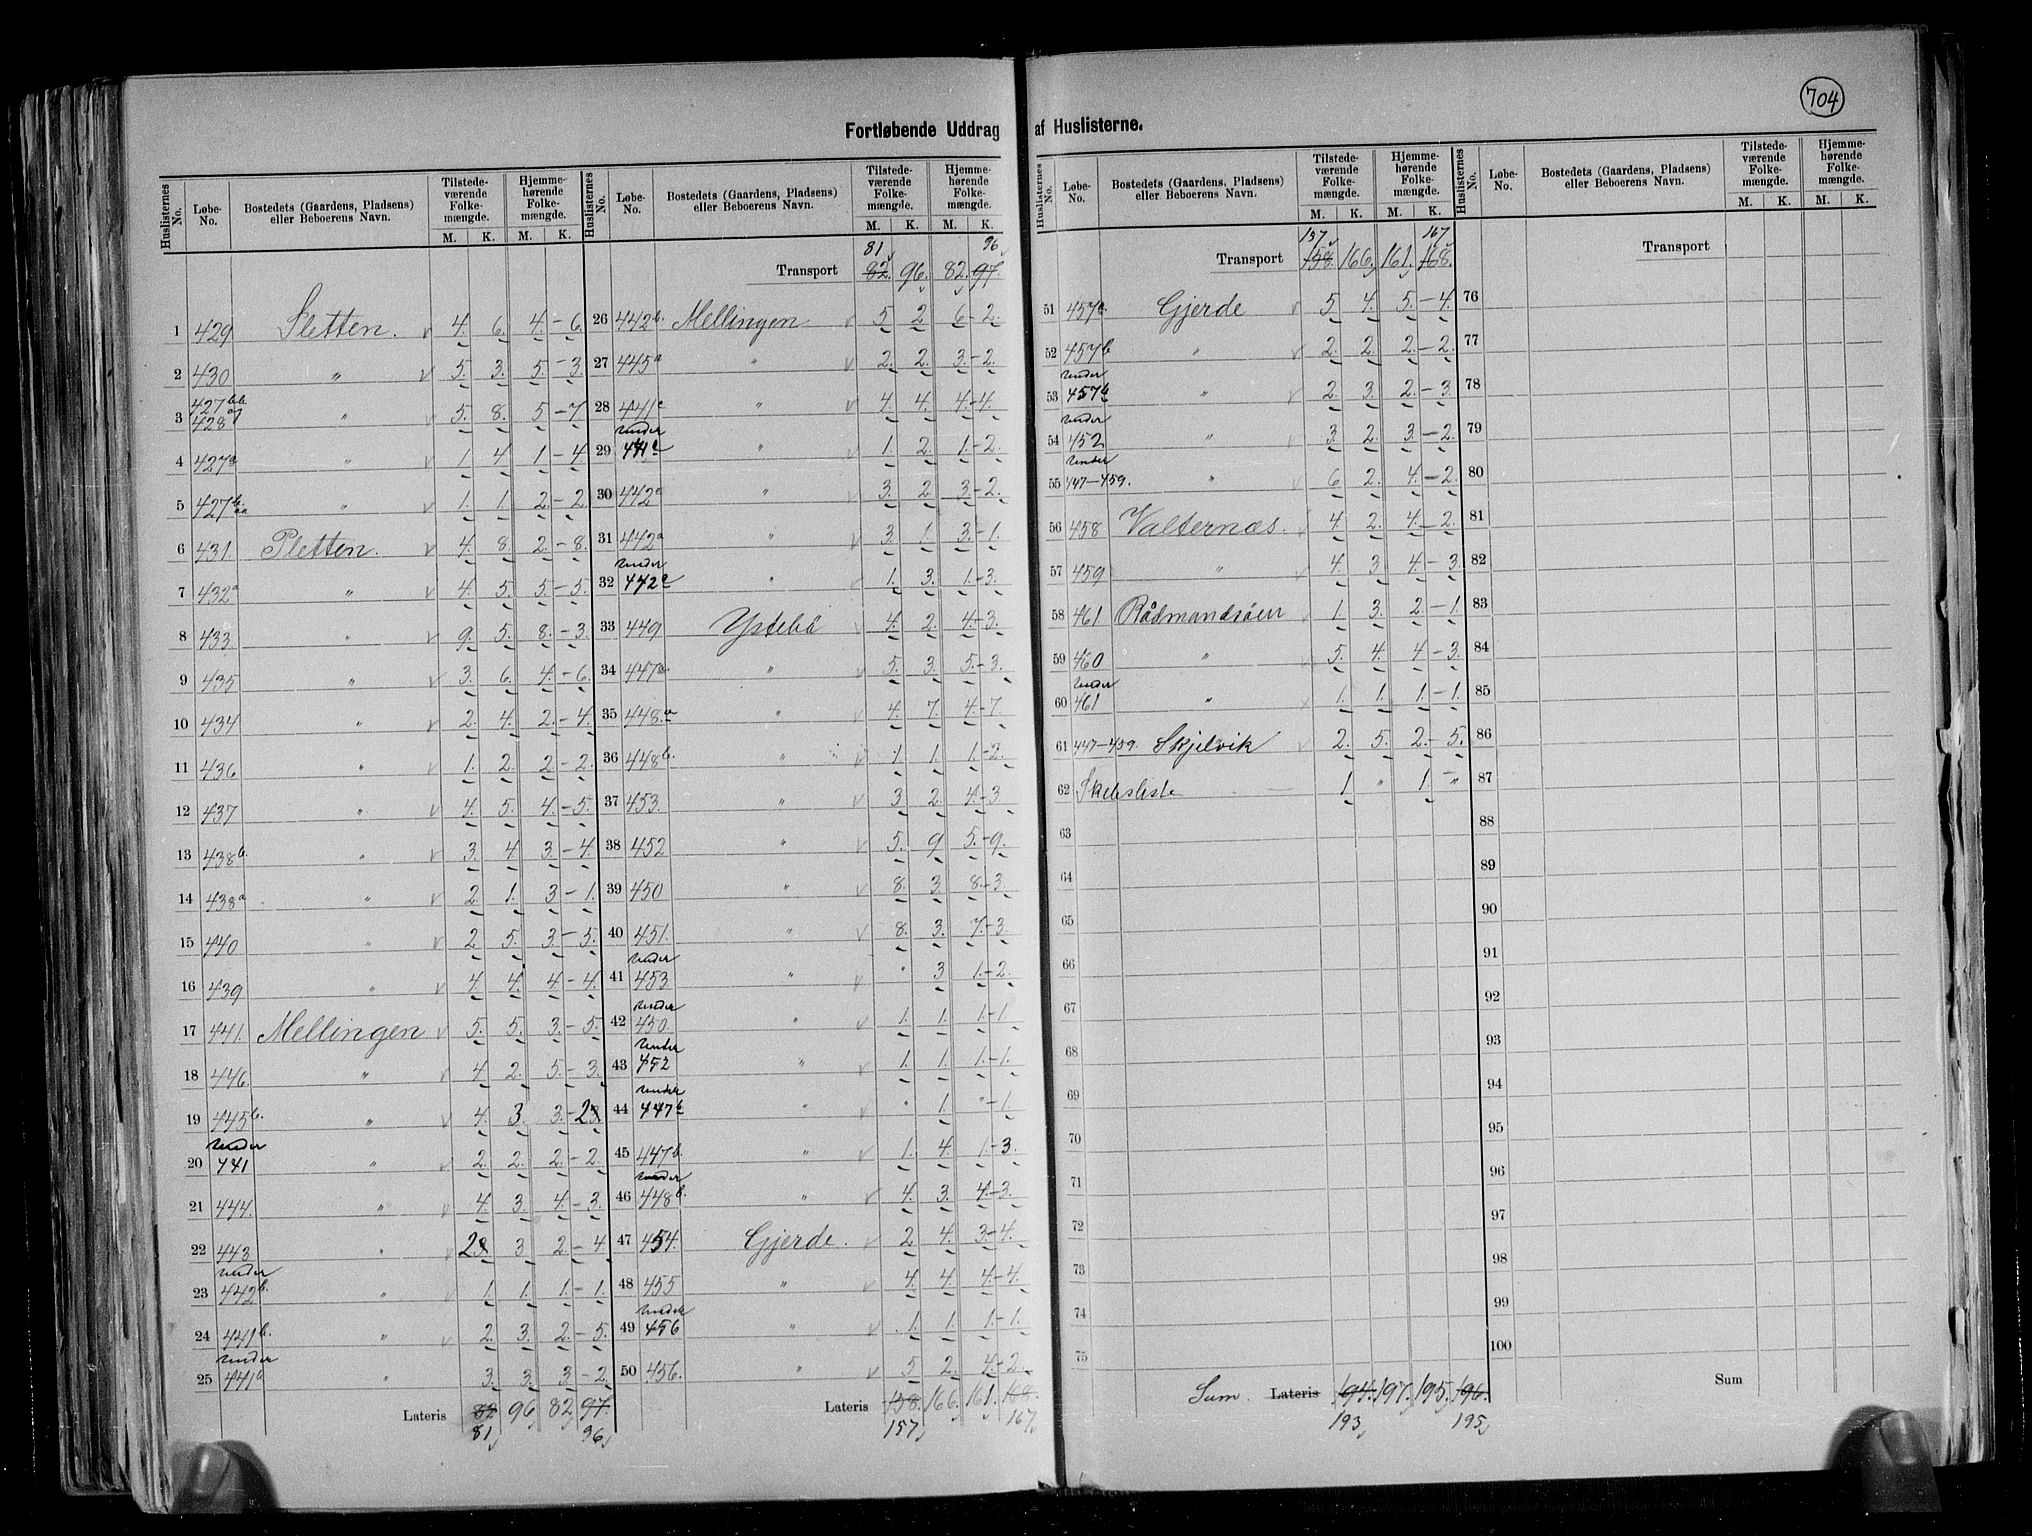 704
Fortløbende Uddrag af Huslisterne.
Huslisternes No. Løbe-No. Bostedets (Gaardens, Pladsens) eller Beboerens Navn. Tilstedeværende Folkemængde. M. K. Hjemmehørende Folkemængde. M. K.
1 429 Sletten. 4. 6. 4. – 6.
2 430 " 5. 3. 5. – 3.
3 427 bb 428 " 5. 8. 5 – 7.
4 427a " 1 4 1 – 4
5 427b. aa " 1. 1. 2 – 2.
6 431. Pletten. 4. 8. 2. – 8.
7 432a " 4. 5. 5. – 5.
8 433 " 9. 5. 8. – 3.
9 435 " 3. 6. 4. – 6.
10 434 " 2. 4. 2. – 4.
11 436 " 1. 2. 2 – 2.
12 437 " 4. 5. 4. – 5.
13 438b. " 3. 4 3. – 4.
14 438a " 2. 1. 3 – 1.
15 440 " 2 5. 3. – 5.
16 439 " 4. 4. 4 – 4.
17 441. Mellingen 5. 5. 3. – 5.
18 446 " 4 2. 5. – 3.
19 445b. " 4. 3. 3. – 2
20 under 441 " 2. 2. 2. – 2.
21 444. " 4. 3. 4. – 3.
22 443 " 2 3 2. – 4.
23 under 442b. " 1. 1. 1. – 1.
24 441b. " 2. 3. 2. – 5.
25 under 441b " 3. 3. 3 – 2.
Lateris 82 96 82 97.
81 96
Huslisternes No. Løbe-No. Bostedets (Gaardens, Pladsens) eller Beboerens Navn. Tilstedeværende Folkemængde. M. K. Hjemmehørende Folkemængde. M. K.
81 96
Transport 82. 96. 82. 97.
26 442b. Mellingen 5. 2 6 – 2.
27 445a " 2. 2. 3. – 2.
28 441c " 4. 4. 4. – 4.
29 under 441c " 1. 2. 1. – 2.
30 442a " 3. 2 3 – 2.
31 442a " 3. 1. 3. – 1.
32 under 442a " 1. 3. 1. – 3.
33 449 Ystebö 4. 2. 4. – 3.
34 447a. " 5. 3. 5. – 3.
35 448.a " 4. 7. 4. – 7.
36 448b. " 1. 1. 1. – 2.
37 453. " 3 2. 4. – 3.
38 452 " 5. 9 5. – 9.
39 450 " 8. 3. 8. – 3
40 451. " 8. 3. 7. – 3.
41 under 453 " " 3 1. – 2.
42 under 450 " 1. 1. 1. – 1.
43 under 452 " 1. 1. 1. – 1.
44 under 447b " " 1. " – 1.
45 447b. " 1. 4. 1. – 3.
46 under 448b. " 4. 3. 4. – 3.
47 454. Gjerde. 2 4. 3. – 4.
48 455 " 4. 4. 4. – 4.
49 under 456 " 1. 1. 1. – 1.
50 456. " 5 2. 4. – 2.
Lateris 158. 166. 161. 168.
157 167
Huslisternes No. Løbe-No. Bostedets (Gaardens, Pladsens) eller Beboerens Navn. Tilstedeværende Folkemængde. M. K. Hjemmehørende Folkemængde. M. K.
157 167
Transport 158. 166. 161. 168.
51 457a. Gjerde 5. 4. 5. – 4.
52 457b " 2. 2. 2. – 2.
53 under 457b " 2. 3. 2. – 3.
54 under 452 " 3. 2. 3. – 2.
55 under 447–459. " 6 2. 4. – 2.
56 458 Valternæs. 4 2. 4. – 2.
57 459 " 4. 3 4. – 3.
58 461 Rådmandsöen 1. 3. 2. – 1.
59 460 " 5. 4. 4 – 3.
60 under 461 " 1. 1. 1. – 1.
61 447–459. Skjelvik 2. 5. 2. – 5.
62 Skibsliste 1 " 1. "
63
64
65
66
67
68
69
70
71
72
73
74
75
Sum. Lateris 194. 197. 195. 196.
193 195
Huslisternes No. Løbe-No. Bostedets (Gaardens, Pladsens) eller Beboerens Navn. Tilstedeværende Folkemængde. M. K. Hjemmehørende Folkemængde. M. K.
Transport
76
77
78
79
80
81
82
83
84
85
86
87
88
89
90
91
92
93
94
95
96
97
98
99
100
Sum